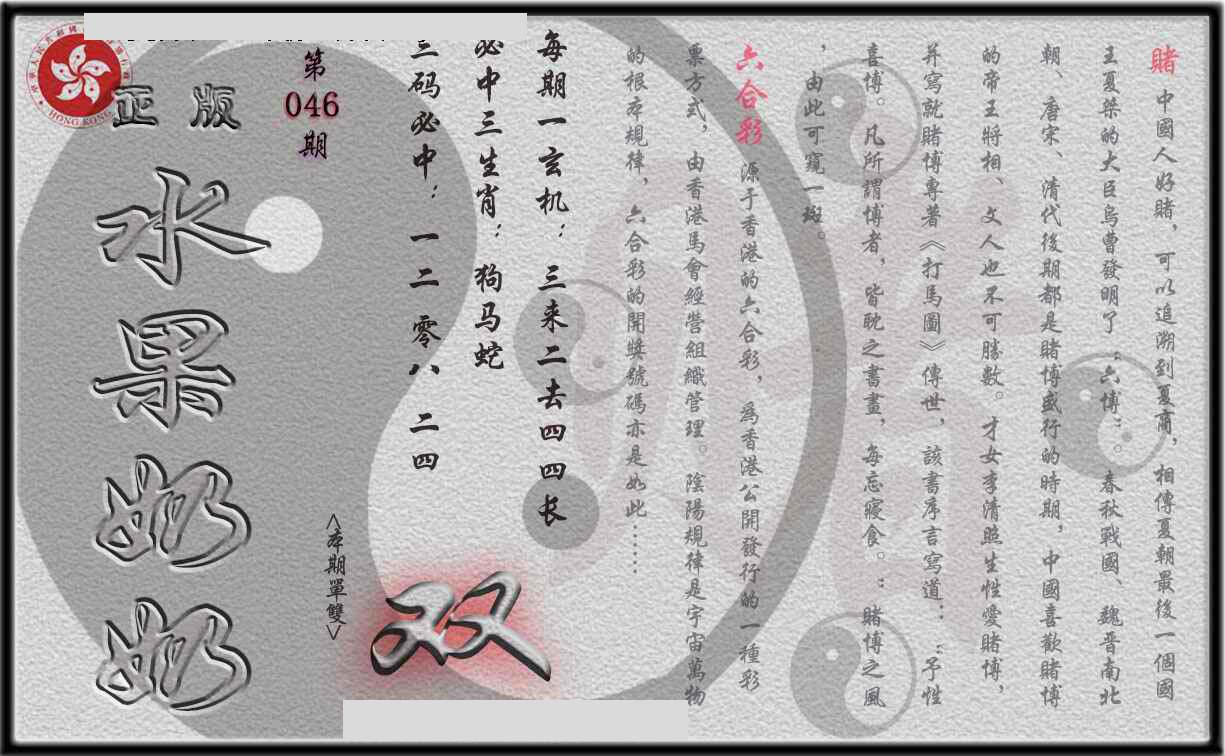 賭 中國人好賭，可以追溯到夏商，相傳夏朝最後一個國
王夏桀的大臣烏曹發明了“六博”。春秋戰國、魏晋南北
朝、唐宋、清代後期都是賭博盛行的時期，中國喜歡賭博
的帝王將相、文人也不可勝數。才女李清照生性愛賭博，
并寫就賭博專著《打馬圖》傳世，該書序言寫道：“予性
喜博。凡所謂博者，皆耽之書畫，每忘寢食。”賭博之風
，由此可窺一斑。
六合彩 源于香港的六合彩，為香港公開發行的一種彩
票方式，由香港馬會經營組織管理。陰陽規律是宇宙萬物
的根本規律，六合彩的開獎號碼亦是如此……
每期一玄机：三来二去四四长
必中三生肖：狗马蛇
三码必中：一二 零八 二四
第
046
期
<本期單雙>
双
正版
水果奶奶
HONG KONG